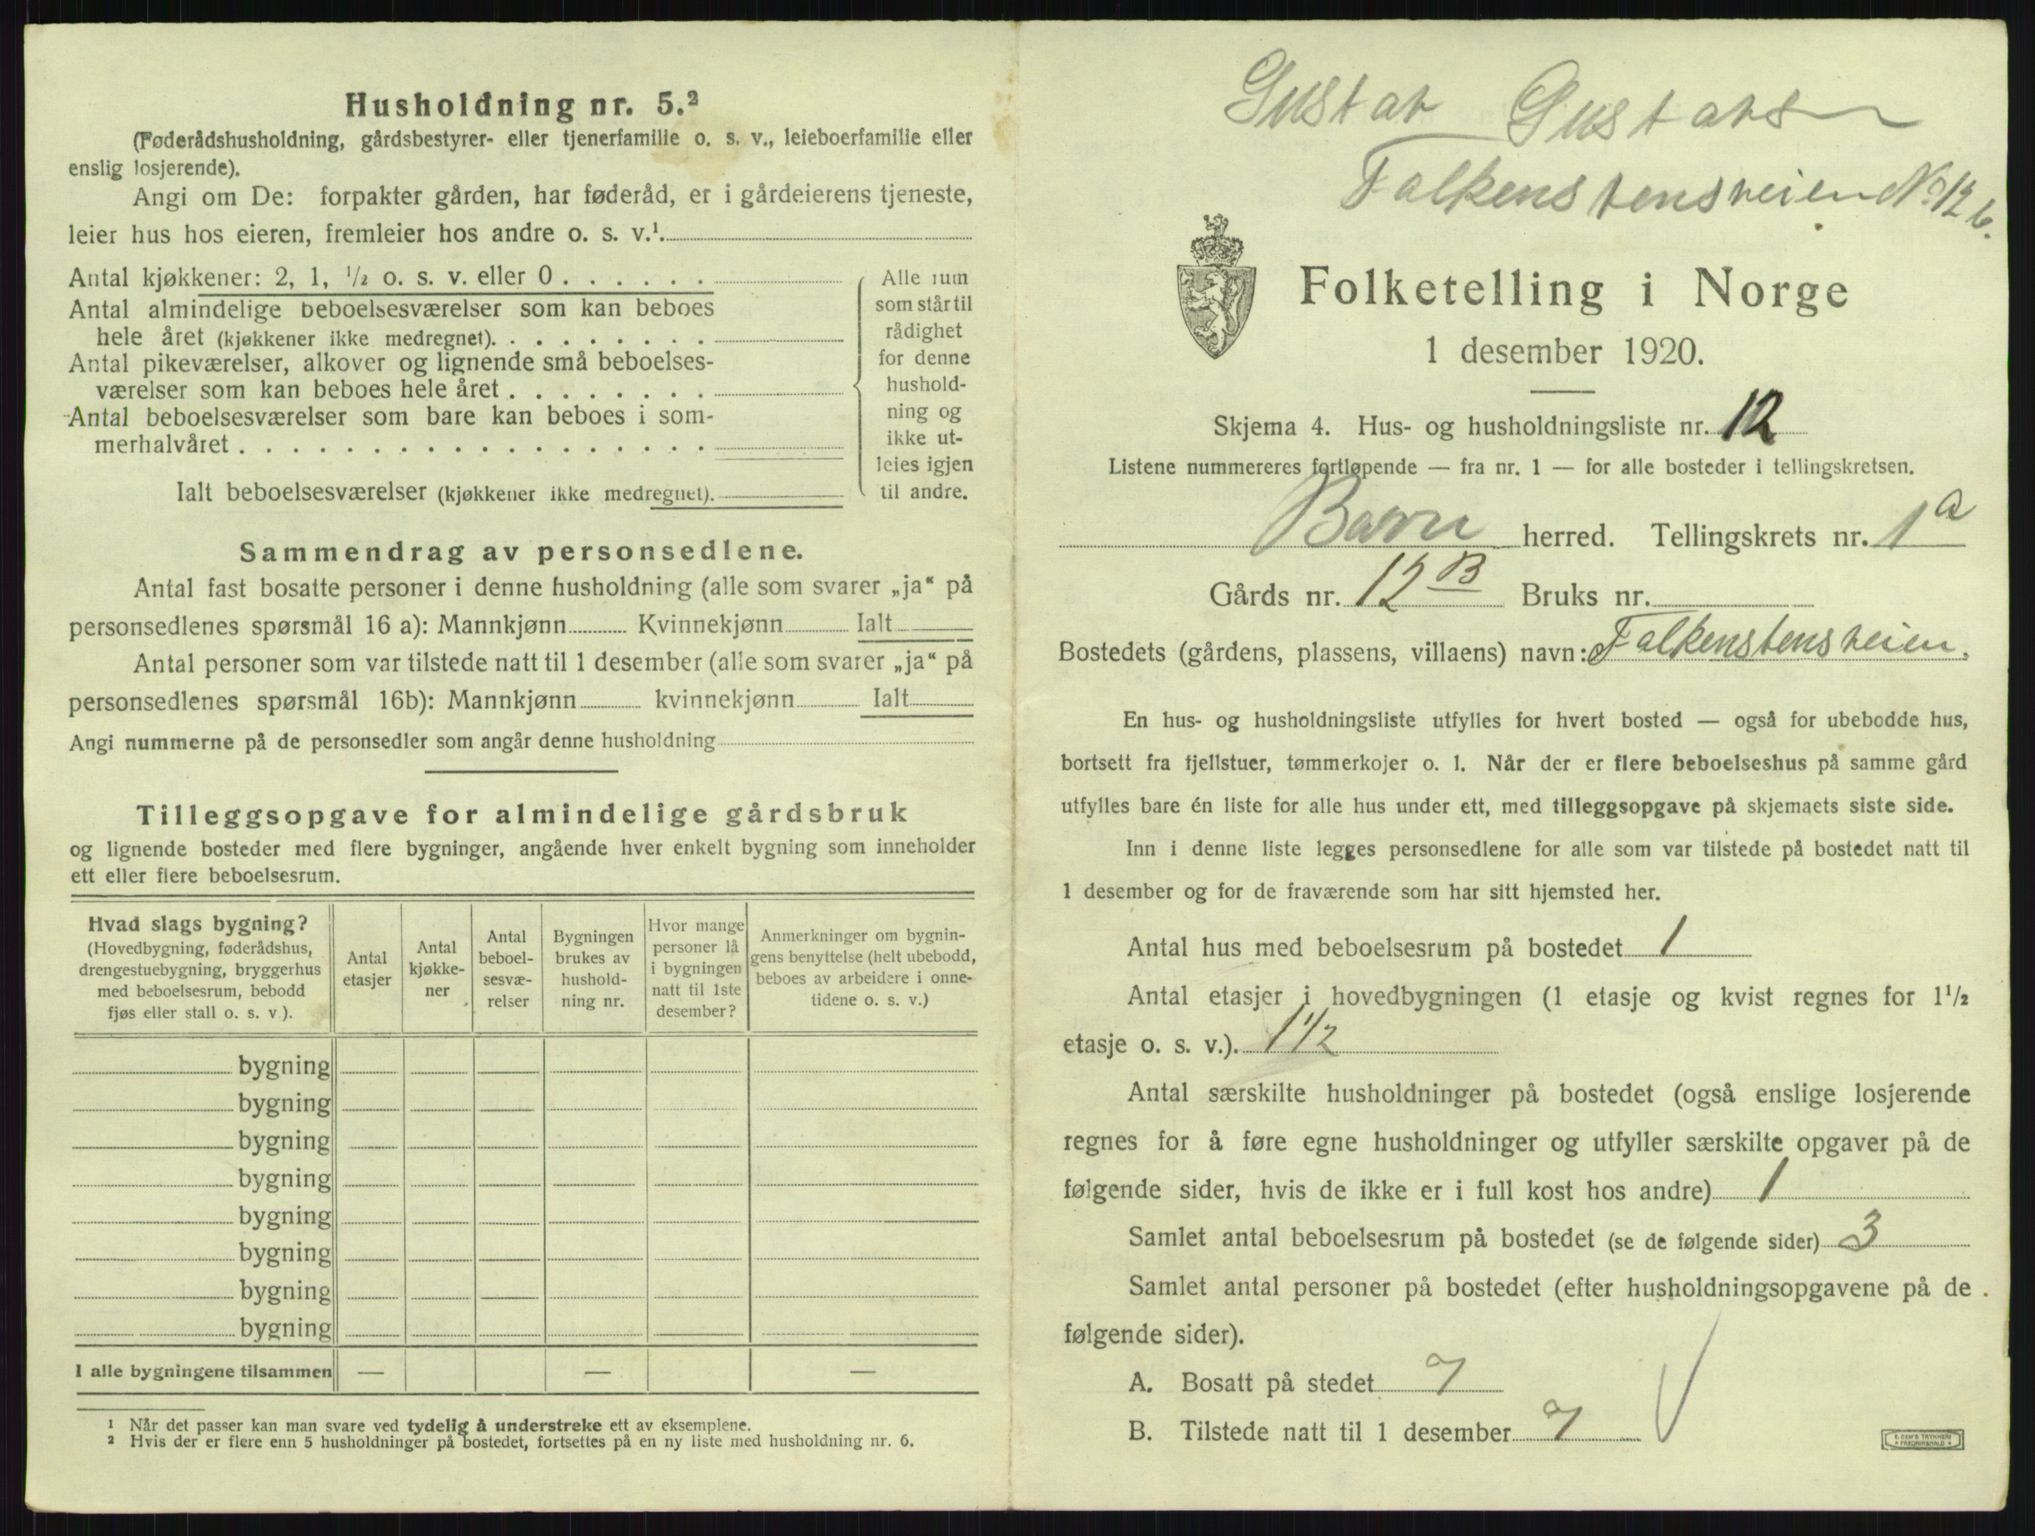 Husholdning nr. 5.²
(Føderådshusholdning, gårdsbestyrer- eller tjenerfamilie o. s. v., leieboerfamilie eller
enslig losjerende).
Angi om De: forpakter gården, har føderåd, er i gårdeierens tjeneste,
leier hus hos eieren, fremleier hos andre o. s. v.¹
Antal kjøkkener: 2, 1, ¹/₂ o. s. v. eller 0 . . . . . .
Antal almindelige beboelsesværelser som kan beboes
hele året (kjøkkener ikke medregnet). . . . . . . . .
Antal pikeværelser, alkover og lignende små beboelses-
værelser som kan beboes hele året . . . . . . . .
Antal beboelsesværelser som bare kan beboes i som-
merhalvåret . . . . . . . . . . . . . . . . . .
Ialt beboelsesværelser (kjøkkener ikke medregnet).
Alle rum
som står til
rådighet
for denne
hushold-
ning og
ikke ut-
leies igjen
til andre.
Sammendrag av personsedlene.
Antal fast bosatte personer i denne husholdning (alle som svarer „ja“ på
personsedlenes spørsmål 16 a): Mannkjønn Kvinnekjønn Ialt
Antal personer som var tilstede natt til 1 desember (alle som svarer „ja“ på
personsedlenes spørsmål 16b): Mannkjønn kvinnekjønn Ialt
Angi nummerne på de personsedler som angår denne husholdning
Tilleggsopgave for almindelige gårdsbruk
og lignende bosteder med flere bygninger, angående hver enkelt bygning som inneholder
ett eller flere beboelsesrum.
Hvad slags bygning?
(Hovedbygning, føderådshus,
drengestuebygning, bryggerhus
med beboelsesrum, bebodd
fjøs eller stall o. s. v ).
Antal
etasjer
Antal
kjøkke-
ner
Antal
beboel-
sesvæ-
relser
Bygningen
brukes av
hushold-
ning nr.
Hvor mange
personer lå
i bygningen
natt til 1ste
desember?
Anmerkninger om bygnin-
gens benyttelse (helt ubebodd,
beboes av arbeidere i onne-
tidene o. s. v.)
bygning
bygning
bygning
bygning
bygning
bygning
bygning
bygning
I alle bygningene tilsammen — — —
¹ Når det passer kan man svare ved tydelig å understreke ett av eksemplene.
² Hvis der er flere enn 5 husholdninger på bostedet, fortsettes på en ny liste med husholdning nr. 6.
Gustav Gustavsen
Falkenstensveien No 12 b.
Folketelling i Norge
1 desember 1920.
Skjema 4. Hus- og husholdningsliste nr. 12
Listene nummereres fortløpende — fra nr. 1 — for alle bosteder i tellingskretsen.
Borre herred. Tellingskrets nr. 1 a
Gårds nr. 12 B Bruks nr.
Bostedets (gårdens, plassens, villaens) navn: Falkenstensveien.
En hus- og husholdningsliste utfylles for hvert bosted — også for ubebodde hus,
bortsett fra fjellstuer, tømmerkojer o. l. Når der er flere beboelseshus på samme gård
utfylles bare én liste for alle hus under ett, med tilleggsopgave på skjemaets siste side.
Inn i denne liste legges personsedlene for alle som var tilstede på bostedet natt til
1 desember og for de fraværende som har sitt hjemsted her.
Antal hus med beboelsesrum på bostedet 1
Antal etasjer i hovedbygningen (1 etasje og kvist regnes for 1¹/₂
etasje o. s. v.). 1 1/2
Antal særskilte husholdninger på bostedet (også enslige losjerende
regnes for å føre egne husholdninger og utfyller særskilte opgaver på de
følgende sider, hvis de ikke er i full kost hos andre) 1
Samlet antal beboelsesrum på bostedet (se de følgende sider) 3
Samlet antal personer på bostedet (efter husholdningsopgavene på de
følgende sider).
A. Bosatt på stedet 7
B. Tilstede natt til 1 desember 7